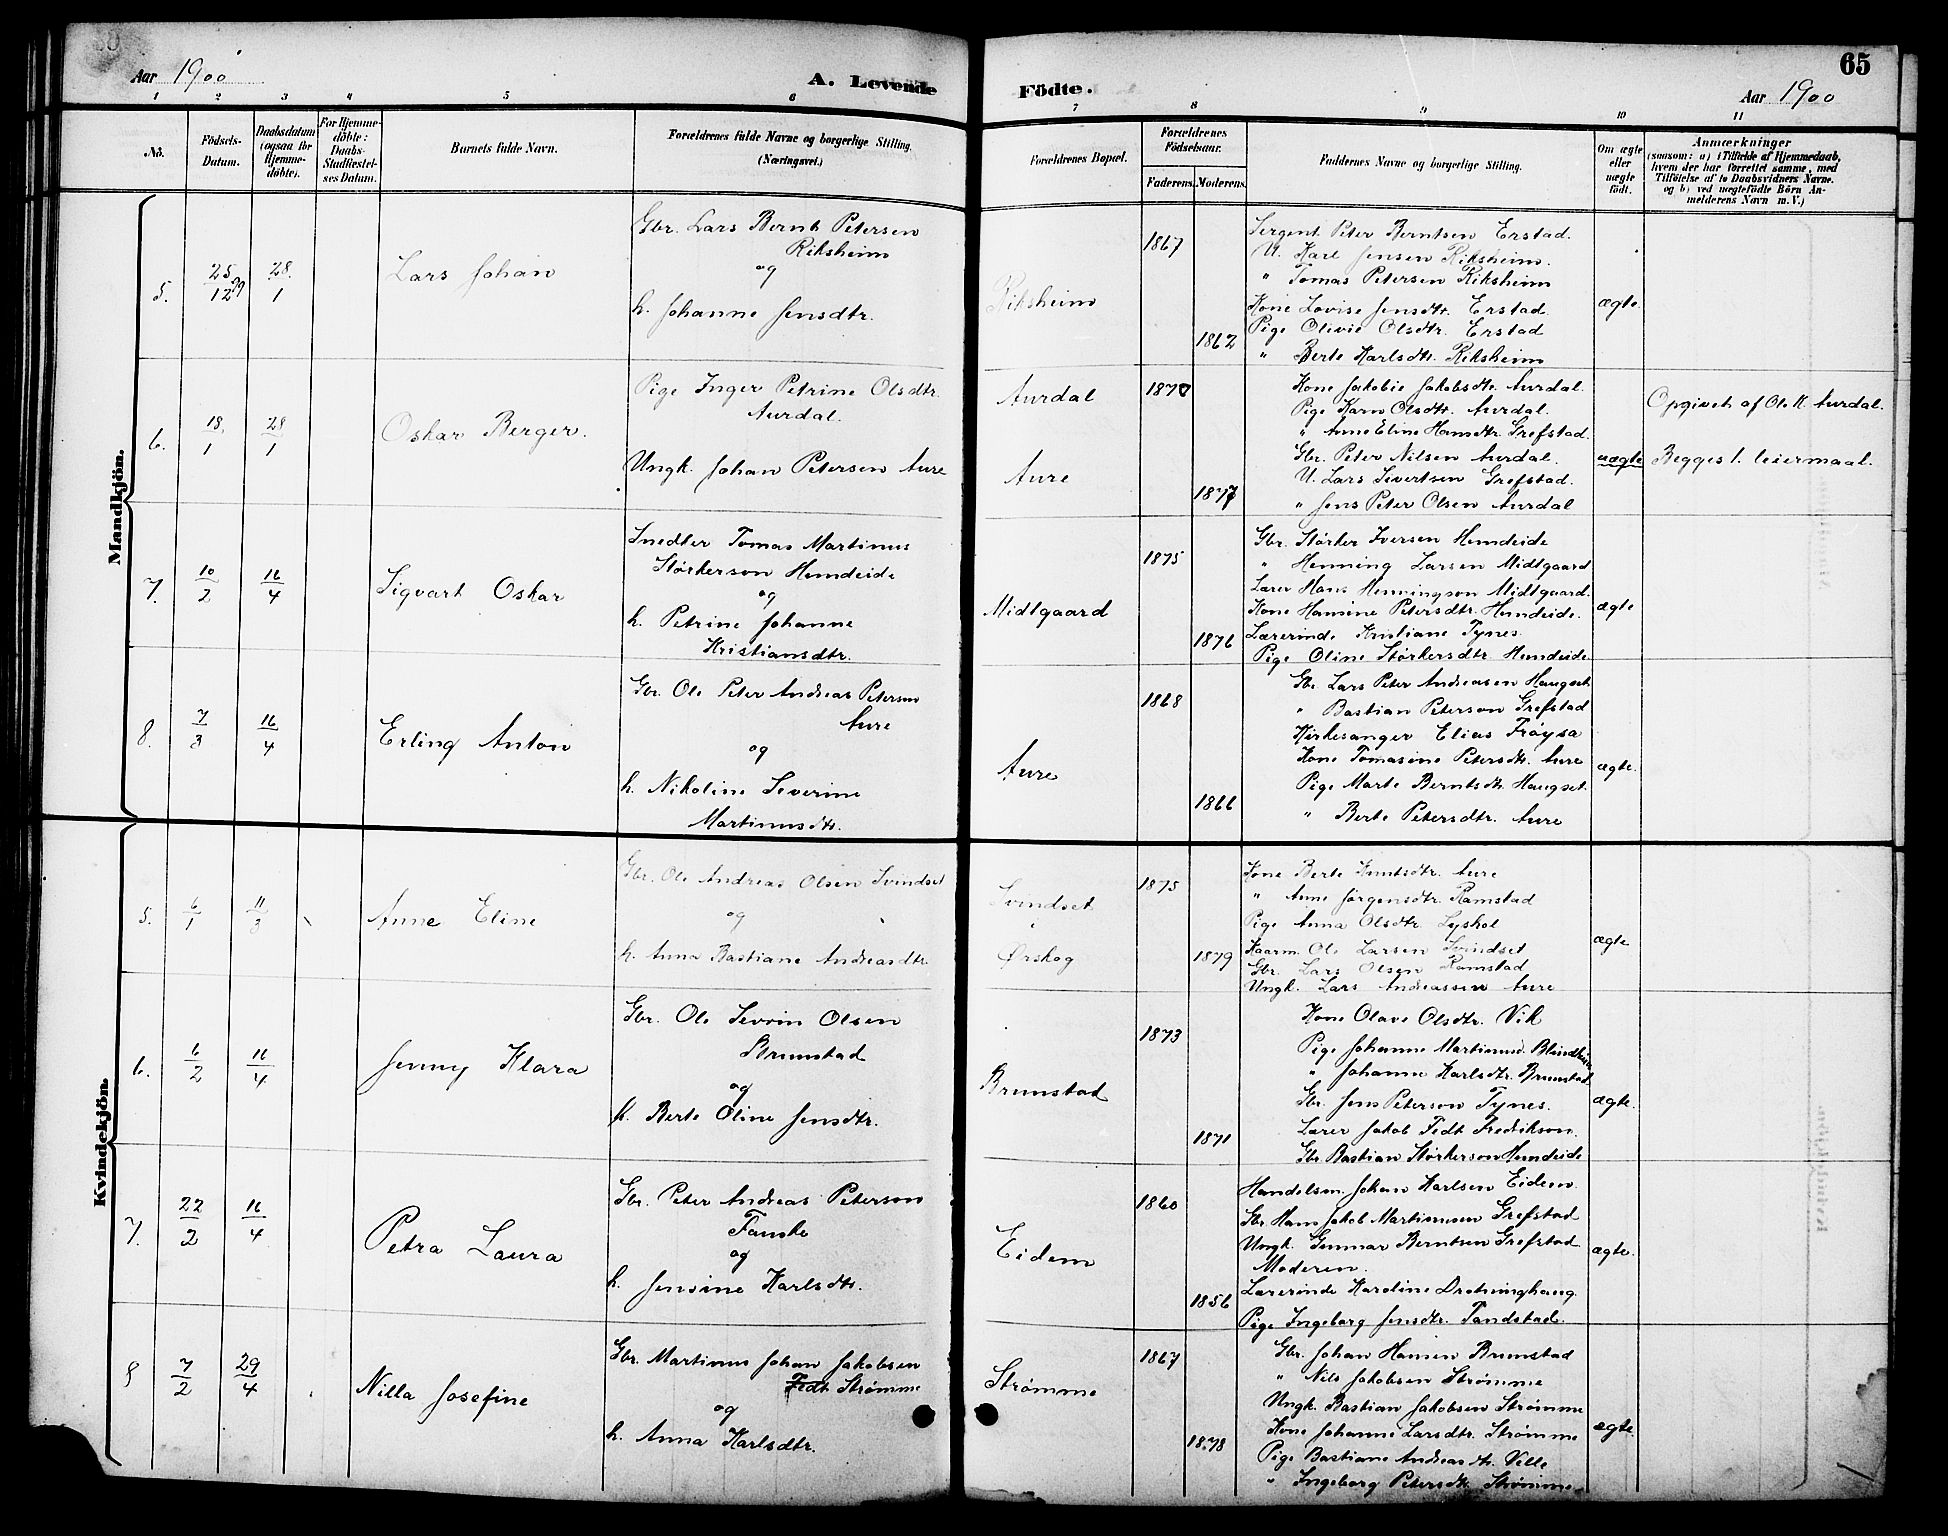 Aar 1900
A. Levende
Födte.
65
Aar 1900
1 2 3 4 5 6 7 8 9 10 11
No.
Födsels-
Datum.
Daabsdatum
(ogsaa for
Hjemme-
döbte).
For Hjemme-
döbte:
Daabs-
Stadfæstel-
ses Datum.
Barnets fulde Navn.
Forældrenes fulde Navne og borgerlige Stilling.
(Næringsvei.)
Forældrenes Bopæl.
Forældrenes
Födselsaar.
Faderens. Moderens.
Faddernes Navne og borgerlige Stilling.
Om ægte
eller
uægte
födt.
Anmærkninger
(saasom: a) i Tilfælde af Hjemmedaab,
hvem der har forrettet samme, med
Tilföielse af to Daabsvidners Navne.
og b) ved uægtefödte Börn An-
melderens Navn m. V.)
Mandkjön.
5.
25/12 99
28/1
Lars Johan
Gbr. Lars Bernt Petersen
Riksheim
og
h. Johanne Jensdtr.
Riksheim
1867
1862
Sergent Peter Berntsen Erstad.
U. Karl Jensen Riksheim.
" Tomas Petersen Riksheim
Kone Lovise Jensdtr. Erstad
Pige Olivie Olsdtr. Erstad
" Berte Karlsdtr. Riksheim
ægte.
6.
18/1
28/1
Oskar Berger.
Pige Inger Petrine Olsdtr.
Aurdal.
Ungk. Johan Petersen Aure
Aurdal
Aure
1870
1877
Kone Jakobie Jakobsdtr. Aurdal.
Pige Karn Olsdtr. Aurdal.
" Anne Eline Hansdtr. Grefstad.
Gbr. Peter Nilsen Aurdal.
U. Lars Sivertsen Grefstad.
" Jens Peter Olsen Aurdal
uægte
Opgivet af Ole K. Aurdal.
Begges 1. leiermaal.
7.
10/2
16/4
Sigvart Oskar
Snedker Tomas Martinus
Størkerson Hundeide
og
h. Petrine Johanne
Kristiansdtr.
Midtgaard
1875
1876
Gbr. Størker Iversen Hundeide
" Henning Larsen Midtgaard
Lærer Hans Henningson Midtgaard.
Kone Hansine Petersdtr. Hundeide.
Lærerinde Kristiane Tynes.
Pige Oline Størkersdtr. Hundeide
ægte
8.
7/3
16/4
Erling Anton
Gbr. Ole Peter Andreas Peterson
Aure
og
h. Nikoline Severine
Martinusdtr.
Aure
1868
1866
Gbr. Lars Peter Andreasen Haugset
" Bastian Peterson Grefstad
Kirkesanger Elias Frøysa
Kone Tomasine Petersdtr. Aure
Pige Marte Berntsdtr. Haugset.
" Berte Petersdtr. Aure
ægte.
Kvindekjön.
5.
6/1
11/3
Anne Eline
Gbr. Ole Andreas Olsen Svindset
og
h. Anna Bastiane Andreasdtr.
Svindset
i
Ørskog
1875
1879
Kone Berte Knutsdtr. Aure
" Anne Jørgensdtr. Ramstad
Pige Anna Olsdtr. Lyshol
Kaarm. Ole Larsen Svindset
Gbr. Lars Olsen Ramstad
Ungk. Lars Andreassen Aure
ægte
6.
6/2
16/4
Jenny Klara
Gbr. Ole Sevrin Olsen
Brunstad
og
h. Berte Oline Jensdtr.
Brunstad
1873
1871
Kone Olave Olsdtr. Vik
Pige Johanne Martinusd. Blindheim
" Johanne Karlsdtr. Brunstad
Gbr. Jens Peterson Tynes.
Lærer Jakob Fedt Fredrikson.
Gbr. Bastian Størkerson Hundeide
ægte.
7.
22/2
16/4
Petra Laura
Gbr. Peter Andreas Peterson
Fauske
og
h. Jensine Karlsdtr.
Eidem
1860
1856
Handelsm. Johan Karlsen Eidem.
Gbr. Hans Jakob Martinusen Grefstad
Ungk. Gunnar Berntsen Grefstad
Moderen.
Lærerinde Karoline Drotninghaug
Pige Ingeborg Jensdtr. Tandstad.
ægte.
8
7/2
29/4
Nilla Josefine
Gbr. Martinus Johan Jakobsen
Fedt Strømme
og
h. Anna Karlsdtr.
Strømme
1867
1878
Gbr. Johan Hansen Brunstad
" Nils Jakobsen Strømme
Ungk. Bastian Jakobsen Strømme
Kone Johanne Larsdtr. Strømme
Pige Bastiane Andreasdtr. Velle
" Ingeborg Petersdtr. Strømme
ægte.